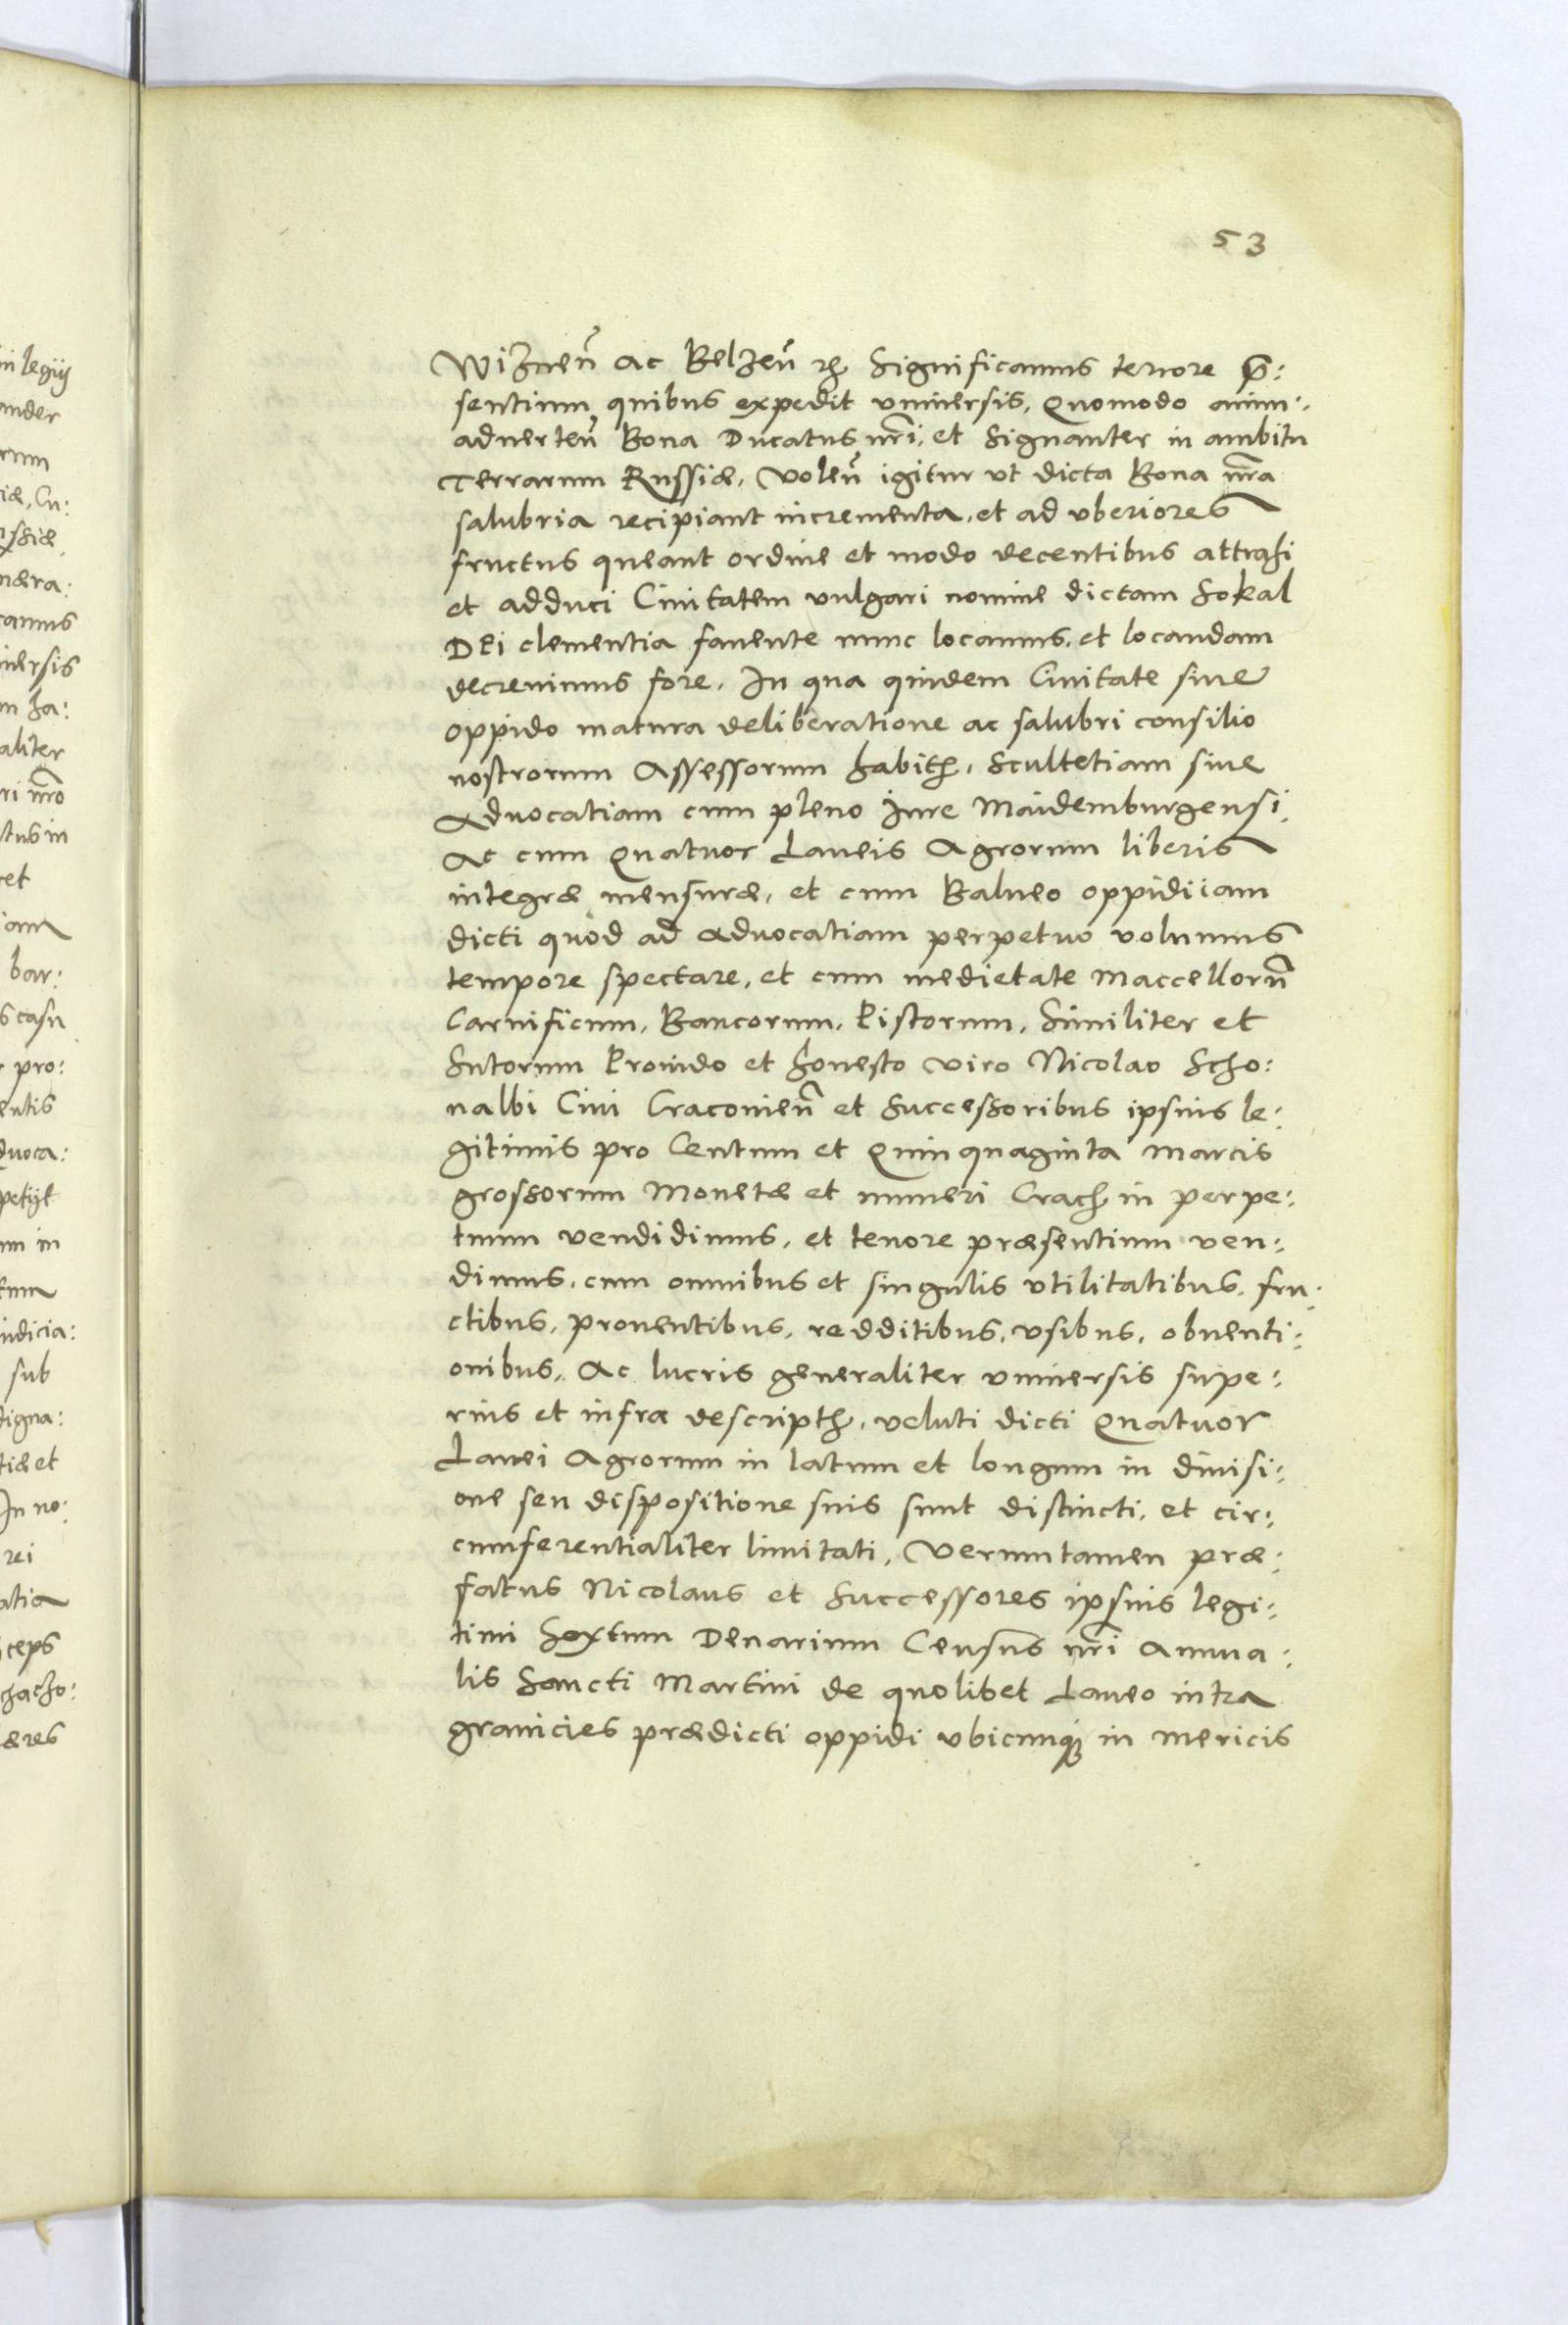 53
Wiznen̄ ac Belzen̄ rc Significamus tenore p̄:
sentium quibus expedit vniuersis, Quomodo anim:
aduerten̄ Bona Ducatus nr̄i, et Signanter in ambitu
Terrarum Russiæ, Volen̄ igitur vt dicta Bona nr̄a
salubria recipiant incrementa, et ad vberiores
fructus queant ordine et modo decentibus attrahi
et adduci Ciuitatem vulgari nomine dictam Sokal
Dei clementia fauente nunc locamus, et locandam
decreuimus fore. In qua quidem Ciuitate siue
oppido matura deliberatione ac salubri consilio
nostrorum Assessorum habith, Scultetiam siue
Aduocatiam cum pleno Iure Maidemburgensi,
Ac cum Quatuor Laneis Agrorum liberis
integræ mensuræ, et cum Balneo oppidi iam
dicti quod ad Aduocatiam perpetuo volumus
tempore spectare, et cum medietate Maccellorū
Carnificum, Bancorum, Pistorum, Similiter et
Sutorum Prouido et honesto viro Nicolao Scho:
nalbi Ciui Cracouien̄ et Successoribus ipsius le:
gitimis pro Centum et Quinquaginta Marcis
grossorum Monetæ et numeri Crach in perpe:
tuum vendidimus, et tenore præsentium ven:
dimus, cum omnibus et singulis vtilitatibus, fru:
ctibus, prouentibus, redditibus, vsibus, obuenti:
onibus, Ac lucris generaliter vniuersis supe:
rius et infra descripth, veluti dicti Quatuor
Lanei Agrorum in latum et longum in diuisi:
one seu dispositione suis sunt distincti, et cir:
cumferentialiter limitati, Verumtamen præ:
fatus Nicolaus et Successores ipsius legi:
timi Sextum Denarium Census nr̄i Annua:
lis Sancti Martini de quolibet Laneo intra
granicies prædicti oppidi vbicunq in mericis